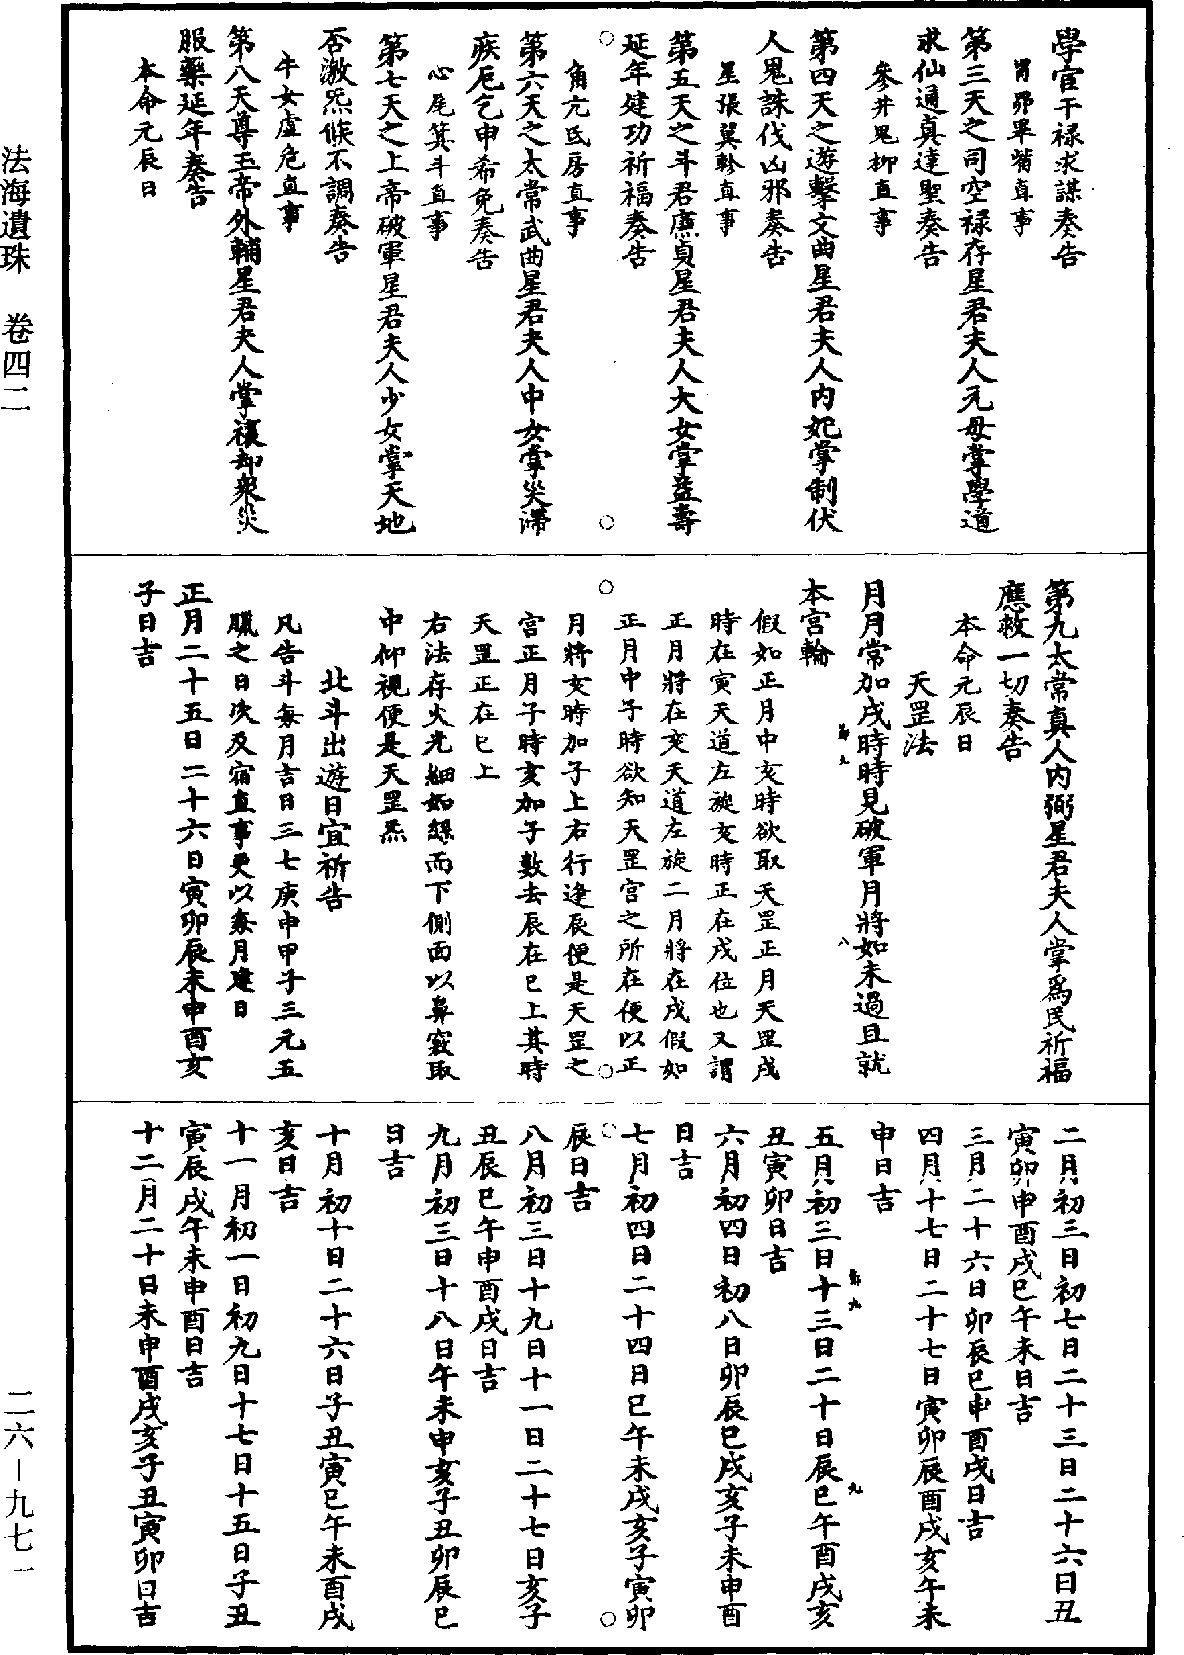 學官干禄求謀奏告
胃昴畢觜直事
第三天之司空禄存星君夫人元母掌學道
求仙通真達聖奏告
參井鬼柳直事
第四天之遊擊文曲星君夫人内妃掌制伏
人鬼誅伐凶邪奏告
星張翼軫直事
第五天之斗君廉貞星君夫人大女掌益壽
延年建功祈福奏告
角亢氐房直事
第六天之太常武曲星君夫人中女掌災滯
疾厄乞申希免奏告
心尾箕斗直事
第七天之上帝破軍星君夫人少女掌天地
否激炁候不調奏告
牛女虚危直事
第八天尊玉帝外輔星君夫人掌禳却衆災
服藥延年奏告
本命元辰日
第九太常真人内弼星君夫人掌爲民祈福
應救一切奏告
本命元辰日
天罡法
月月常加戌時時見破軍月將如未過且就
本宮輪
假如正月中亥時欲取天罡正月天罡戌
時在寅天道左旋亥時正在戌位也又謂
正月將在亥天道左旋二月將在戌假如
正月中子時欲知天罡宮之所在便以正
月將亥時加子上右行逢辰便是天罡之
宮正月子時亥加子數去辰在巳上其時
天罡正在巳上
右法存火光細如綫而下側面以鼻竅取
中仰視便是天罡炁
北斗出遊日宜祈告
凡告斗每月吉日三七庚申甲子三元五
臘之日次及宿直事更以每月建日
正月二十五日二十六日寅卯辰未申酉亥
子日吉
二月初三日初七日二十三日二十六日丑
寅卯申酉戌巳午未日吉
三月二十六日卯辰巳申酉戌日吉
四月十七日二十七日寅卯辰酉戌亥午未
申日吉
五月初三日十三日二十日辰巳午酉戌亥
丑寅卯日吉
六月初四日初八日卯辰巳戌亥子未申酉
日吉
七月初四日二十四日巳午未戌亥子寅卯
辰日吉
八月初三日十九日十一日二十七日亥子
丑辰巳午申酉戌日吉
九月初三日十八日午未申亥子丑卯辰巳
日吉
十月初十日二十六日子丑寅巳午未酉戌
亥日吉
十一月初一日初九日十七日十五日子丑
寅辰戌午未申酉日吉
十二月二十日未申酉戌亥子丑寅卯日吉
法海遺珠 卷四二
二六－九七一